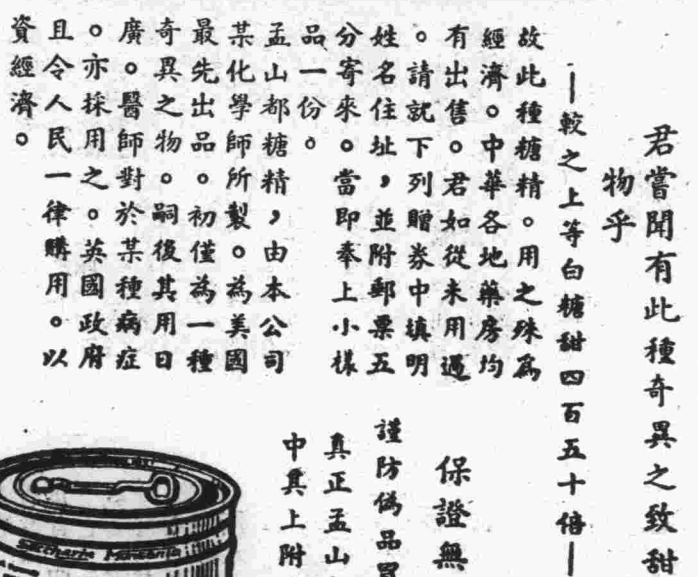 君嘗聞有此種奇異之致甜
物乎
—較之上等白糖甜四百五十倍—
故此種糖精。用之殊為
經濟。中華各地藥房均
有出售。君如從未用過
。請就下列贈券中填明
姓名住址，並附郵票五
分寄來。當即奉上小樣
品一份。
孟山都糖精，由本公司
某化學師所製。為美國
最先出品。初僅為一種
奇異之物。嗣後其用日
廣。醫師對於某種病症
。亦採用之。英國政府
且令人民一律購用。以
資經濟。
保證無
謹防偽品冒
真正孟山
中其上附
Saccharin Monsanto